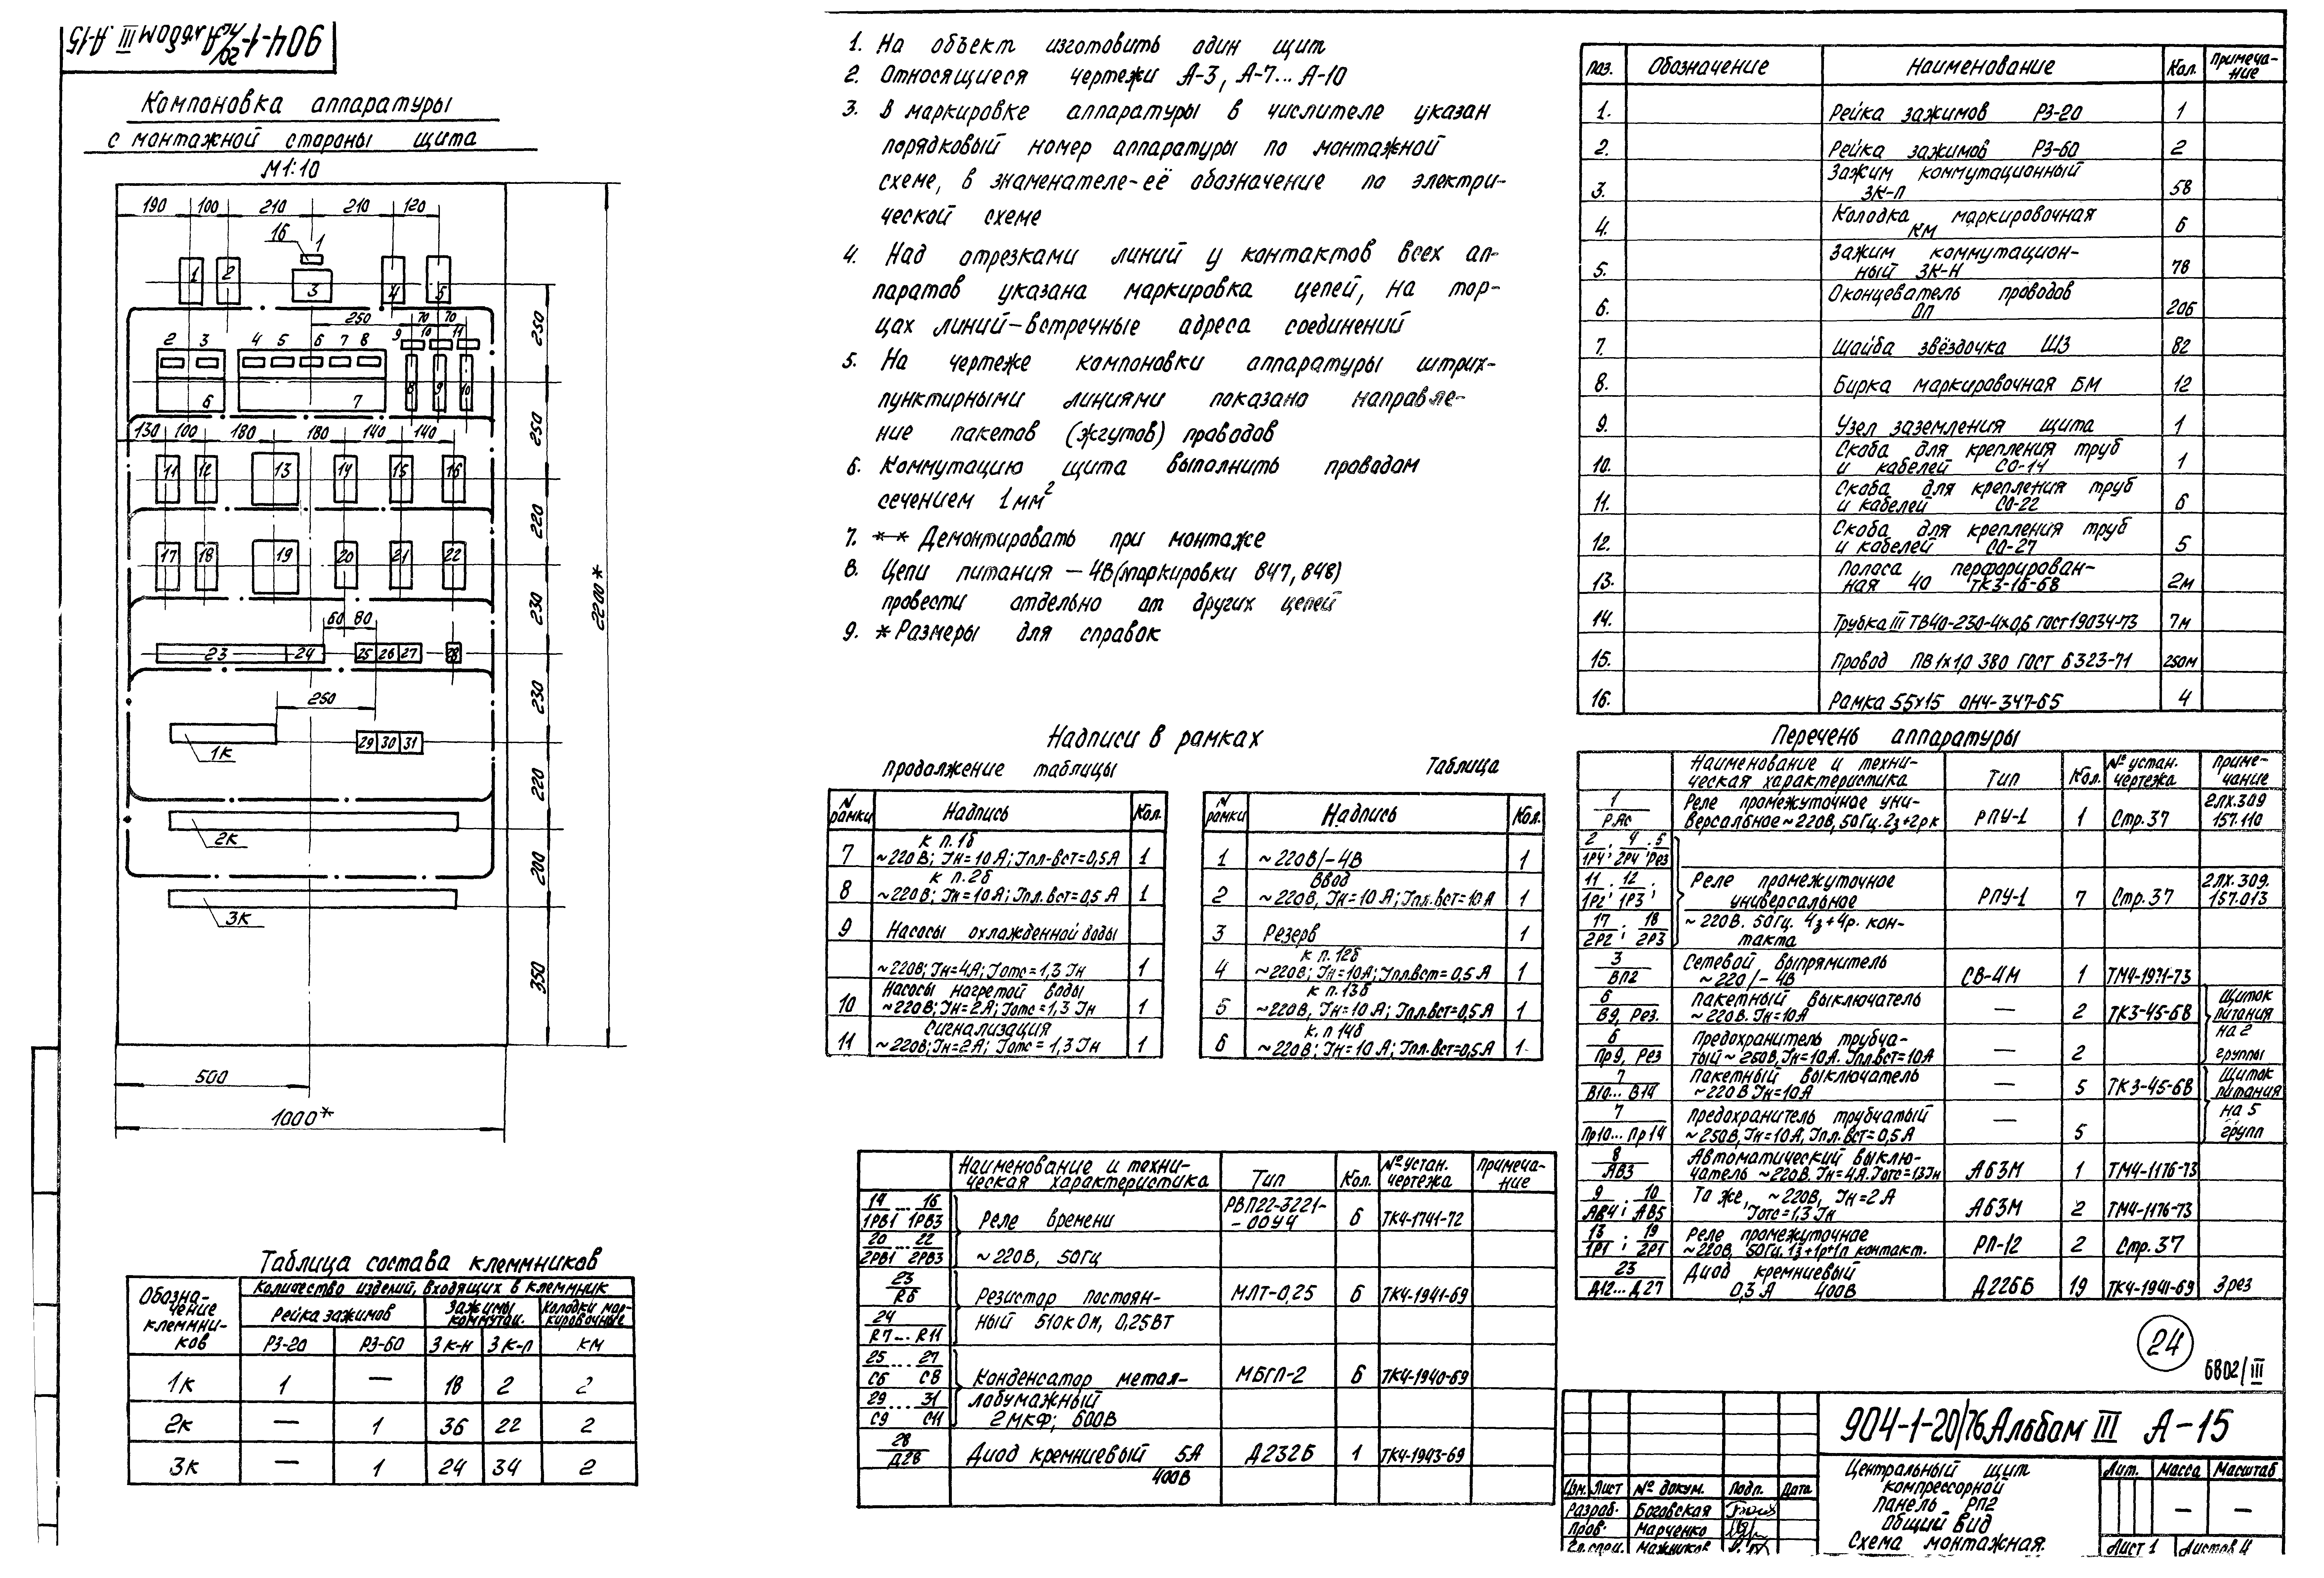 904-1-20/76 Альбом III А-15
Компоновка аппаратуры
с монтажной стороны щита
М1:10
190 100 210 210 120
16 1
1 2 3 4 5
250 70 70
2 3 4 5 6 7 8 9 10 11
6 7 8 9 10
130 100 180 180 140 140
11 12 13 14 15 16
17 18 19 20 21 22
60 80
23 24 25 26 27 28
250
1К 29 30 31
2К
3К
250
250
220
230
230
220
200
350
2200*
500
1000*
Таблица состава клеммников
Обозна-
чение
клеммни-
ков
Количество изделий, входящих в клеммник
Рейка зажимов
Зажимы
коммутац.
Колодки мар-
кировочные
РЗ-20 РЗ-60 ЗК-Н ЗК-П КМ
1К 1 — 18 2 2
2К — 1 36 22 2
3К — 1 24 34 2
1. На объект изготовить один щит
2. Относящиеся чертежи А-3, А-7... А-10
3. В маркировке аппаратуры в числителе указан
порядковый номер аппаратуры по монтажной
схеме, в знаменателе-её обозначение по электри-
ческой схеме
4. Над отрезками линий у контактов всех ап-
паратов указана маркировка цепей, на тор-
цах линий-встречные адреса соединений
5. На чертеже компоновки аппаратуры штрих-
пунктирными линиями показано направле-
ние пакетов (жгутов) проводов
6. Коммутацию щита выполнить проводом
сечением 1мм²
7. ** Демонтировать при монтаже
8. Цепи питания — 4В(маркировки 847, 848)
провести отдельно от других цепей
9. * Размеры для справок
Надписи в рамках
Продолжение таблицы
N
рамки Надпись Кол.
к п.1б
7 ~220В; Iн=10А; Iпл-вст=0,5А 1
к п.2б
8 ~220В; Iн=10А; Iпл.вст=0,5А 1
9 Насосы охлажденной воды
~220В; Iн=4А; Iотс=1,3 Iн 1
Насосы нагретой воды
10 ~220В; Iн=2А; Iотс=1,3 Iн 1
Сигнализация
11 ~220В; Iн=2А; Iотс=1,3 Iн 1
Таблица
N
рамки Надпись Кол.
1 ~220В/-4В 1
Ввод
2 ~220В, Iн=10А; Iпл.вст=10А 1
3 Резерв 1
к п.12б
4 ~220В; Iн=10А; Iпл.вст=0,5А 1
к п.13б
5 ~220В, Iн=10А; Iпл.вст=0,5А 1
к.п 14б
6 ~220В; Iн=10А; Iпл.вст=0,5А 1
Наименование и техни-
ческая характеристика Тип Кол. №устан.
чертежа Примеча-
ние
14 ... 16
1РВ1 1РВ3 Реле времени РВП22-3221-
-00У4 6 ТК4-1741-72
20 ... 22
2РВ1 2РВ3 ~220В, 50Гц
23
R6 Резистор постоян- МЛТ-0,25 6 ТК4-1941-69
24
R7...R11 ный 510кОм, 0,25Вт
25 ... 27
С6 С8 Конденсатор метал- МБГП-2 6 ТК4-1940-69
29 ... 31
С9 С11 лобумажный
2МКФ; 600В
28
Д28 Диод кремниевый 5А Д232Б 1 ТК4-1943-69
400В
Поз. Обозначение Наименование Кол. Примеча-
ние
1. Рейка зажимов РЗ-20 1
2. Рейка зажимов РЗ-60 2
3. Зажим коммутационный
ЗК-П 58
4. Колодка маркировочная
КМ 6
5. Зажим коммутацион-
ный ЗК-Н 78
6. Оконцеватель проводов
ОП 206
7. Шайба звёздочка ШЗ 82
8. Бирка маркировочная БМ 12
9. Узел заземления щита 1
10. Скоба для крепления труб
и кабелей СО-14 1
11. Скоба для крепления труб
и кабелей СО-22 6
12. Скоба для крепления труб
и кабелей СО-27 5
13. Полоса перфорирован-
ная 40 ТК3-16-68 2м
14. Трубка III ТВ40-230-4х0,6 Гост19034-73 7м
15. Провод ПВ1х1,0 380 Гост 6323-71 250м
16. Рамка 55х15 ОН4-347-65 4
Перечень аппаратуры
Наименование и техни-
ческая характеристика Тип Кол. №устан.
чертежа Приме-
чание
1
РАс Реле промежуточное уни-
версальное ~220В, 50Гц. 2з+2рк РПУ-1 1 Стр.37 2ЛХ.309
157.110
2 ; 4 ; 5
1Р4; 2Р4; Рез
11 ; 12 ;
1Р2; 1Р3; Реле промежуточное
универсальное РПУ-1 7 Стр.37 2ЛХ.309.
157.013
17 ; 18
2Р2; 2Р3 ~220В. 50Гц. 4з+4р. кон-
такта
3
ВП2 Сетевой выпрямитель
~220/-4В СВ-4М 1 ТМ4-1971-73
6
В9, Рез. Пакетный выключатель
~220В. Iн=10А — 2 ТК3-45-68 Щиток
питания
6
Пр9, Рез Предохранитель трубча-
тый ~250В, Iн=10А. Iпл.вст=10А — 2 на 2
группы
7
В10... В14 Пакетный выключатель
~220В Iн=10А — 5 ТК3-45-68 Щиток
питания
7
Пр10... Пр14 Предохранитель трубчатый
~250В, Iн=10А, Iпл.вст=0,5А — 5 на 5
групп
8
АВ3 Автоматический выклю-
чатель ~220В. Iн=4А. Iотс=13Iн А63М 1 ТМ4-1176-73
9 ; 10
АВ4; АВ5 То же, ~220В, Iн=2А
Iотс=1,3 Iн А63М 2 ТМ4-1176-73
13 ; 19
1Р1 ; 2Р1 Реле промежуточное
~220В, 50Гц. 1з+1р+1п контакт. РП-12 2 Стр.37
23
Д12... Д27 Диод кремниевый
0,3А 400В Д226Б 19 ТК4-1941-69 3рез
24
6802/III
904-1-20/76 Альбом III А-15
Центральный щит
компрессорной
Панель РП2
Общий вид
Схема монтажная.
Лит. Масса Масштаб
— —
Лист 1 Листов 4
Изм. Лист № докум. Подп. Дата
Разраб. Боговская
Пров. Марченко
Гл.спец. Мажников